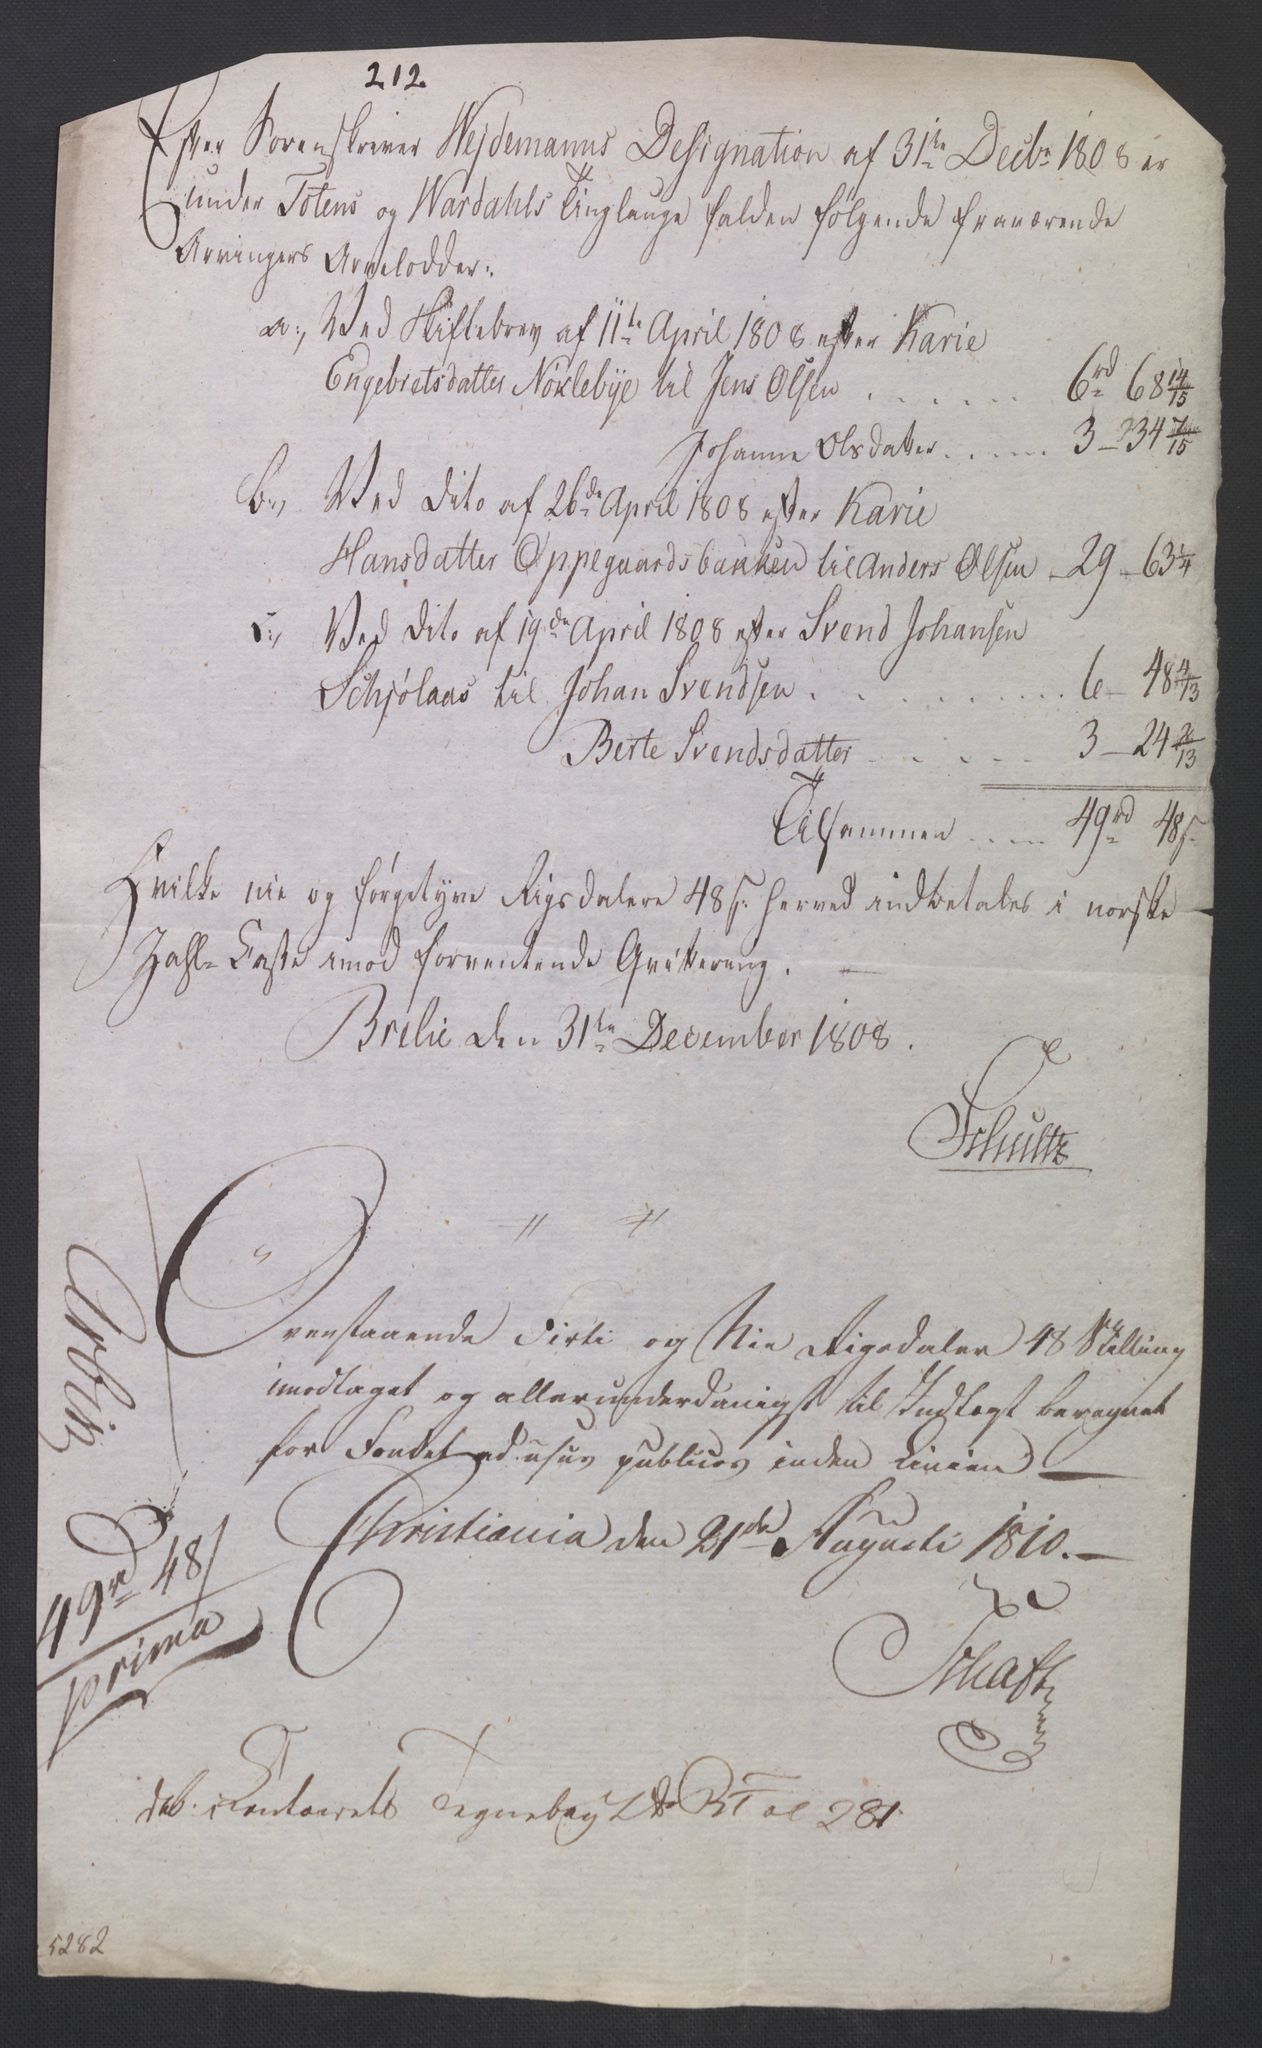 212.
Efter Sorenskriver Wejdemanns Designation af 31te Decbr 1808 er
under Totens og Wardahls Tinglauge falden følgende fraværende
Arvingers Arvelodder:
a:, Ved Skiftebrev af 11te April 1808 efter Karie
Engebretsdatter Nøklebÿe til Jens Olsen . . . . . . 6rd 68 14/15
Johanne Olsdatter . . . . . 3 - 34 7/15
b:, Ved dito af 26de April 1808 efter Karie
Hansdatter Oppegaardsbakken til Anders Olsen - 29 - 63 1/4
c:, Ved dito af 19de April 1808 efter Svend Johansen
Schjølaas til Johan Svendsen . . . . . . . . 6 - 48 4/13
Berte Svendsdatter . . . . . 3 - 24 2/13
Tilsammen . . . . 49rd 48s.
Hvilke nie og førgetyve Rigsdalere 48s. herved indbetales i norske
Zahl-Casse imod forventende Qvittering.
Brelie den 31te December 1808.
Schultz
Ovenstaaende Firti og Nie Rigsdaler 48 Skilling
imodtaget og allerunderdanigst til Indtægt beregnet
for Fondet ad usus publicos inden Linien
Christiania den 21de Augusti 1810.
Schaft
49rd 48s
prima
deb: i Contoirets Regnebog Fol 281
5282